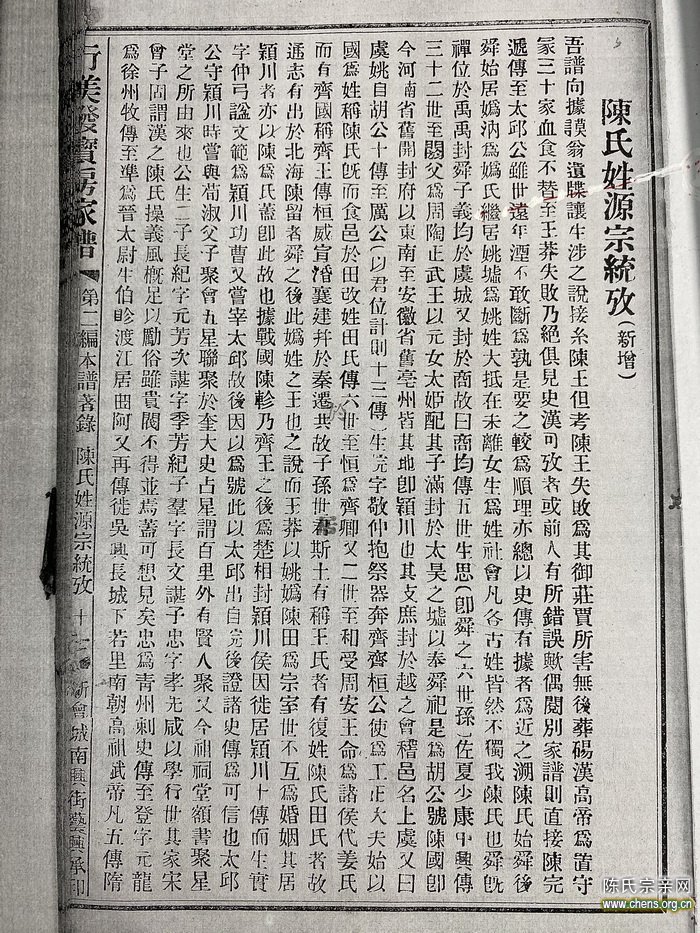 陳氏姓源宗統攷(新增)
吾譜向據謨翁遺牒讓生涉之說接系陳王但考陳王失敗爲其御莊賈所害無後葬碭漢高帝爲置守
冢三十家血食不替至王莽失敗乃絕俱見史漢可攷者或前人有所錯誤歟偶閱別家譜則直接陳完
遞傳至太邱公雖世遠年湮不敢斷爲孰是要之較爲順理亦總以史傳有據者爲近之溯陳氏始舜後
舜始居嬀汭爲嬀氏繼居姚墟爲姚姓大抵在未離女生爲姓社會凡各古姓皆然不獨我陳氏也舜旣
禪位於禹禹封舜子義均於虞城又封於商故曰商均傳五世生思(卽舜之六世孫)佐夏少康中興傳
三十二世至閼父爲周陶正武王以元女太姬配其子滿封於太昊之墟以奉舜祀是爲胡公號陳國卽
今河南省舊開封府以東南至安徽省舊亳州皆其地卽潁川也其支庶封於越之會稽邑名上虞又曰
虞姚自胡公十傳至厲公(以君位計則十三傳)生完字敬仲抱祭器奔齊齊桓公使爲工正大夫始以
國爲姓稱陳氏旣而食邑於田改姓田氏傳六世至恒爲齊卿又二世至和受周安王命爲諸侯代姜氏
而有齊國稱齊王傳桓威宣湣襄建幷於秦遷共故子孫世居斯土有稱王氏者有復姓陳氏田氏者故
通志有出於北海陳留者舜之後此嬀姓之王也之說而王莽以姚嬀陳田爲宗室世不互爲婚姻其居
潁川者亦以陳爲氏蓋卽此故也據戰國陳軫乃齊王之後爲楚相封潁川侯因徙居潁川十傳而生實
字仲弓諡文範爲潁川功曹又嘗宰太邱故後因以爲號此以太邱出自完後證諸史傳爲可信也太邱
公守潁川時嘗與荀淑父子聚會五星聯聚於奎大史占星謂百里外有賢人聚又今祖祠堂額書聚星
堂之所由來也公生二子長紀字元芳次諶字季芳紀子羣字長文諶子忠字孝先咸以學行世其家宋
曾子固謂漢之陳氏操義風槪足以勵俗雖貴閥不得並焉蓋可想見矣忠爲青州刺史傳至登字元龍
爲徐州牧傳至準爲晉太尉生伯眕渡江居曲阿又再傳徙吳興長城下若里南朝高祖武帝凡五傳隋
行美發寶房家譜 第二編本譜著錄 陳氏姓源宗統攷 十 新會城南興街藝興承印
陈氏宗亲网
www.chens.org.cn